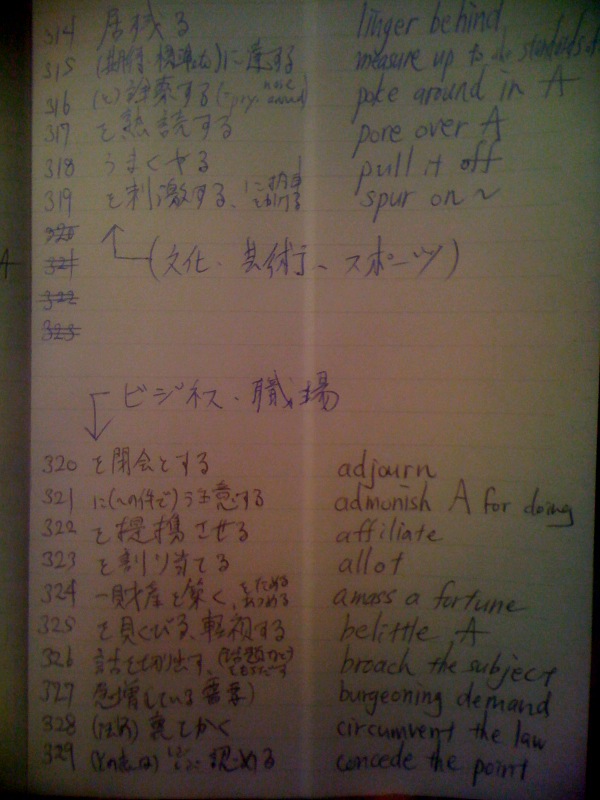 314 居残る linger behind
315 (期待・標準など)に達する measure up to the standards of
316 (を)詮索する (=pry, nose around) poke around in A
317 を熟読する pore over A
318 うまくやる pull it off
319 を刺激する、に拍車をかける spur on ~
320
321 (文化、芸術、スポーツ)
322
323
ビジネス、職場
320 を閉会とする adjourn
321 に(〜の件で)注意する admonish A for doing
322 を提携させる affiliate
323 を割り当てる allot
324 一財産を築く、をためる あつめる amass a fortune
325 を見くびる、軽視する belittle A
326 話を切り出す、(話題など) broach the subject
327 急増している需要) burgeoning demand
328 (法の) 裏をかく circumvent the law
329 認める concede the point